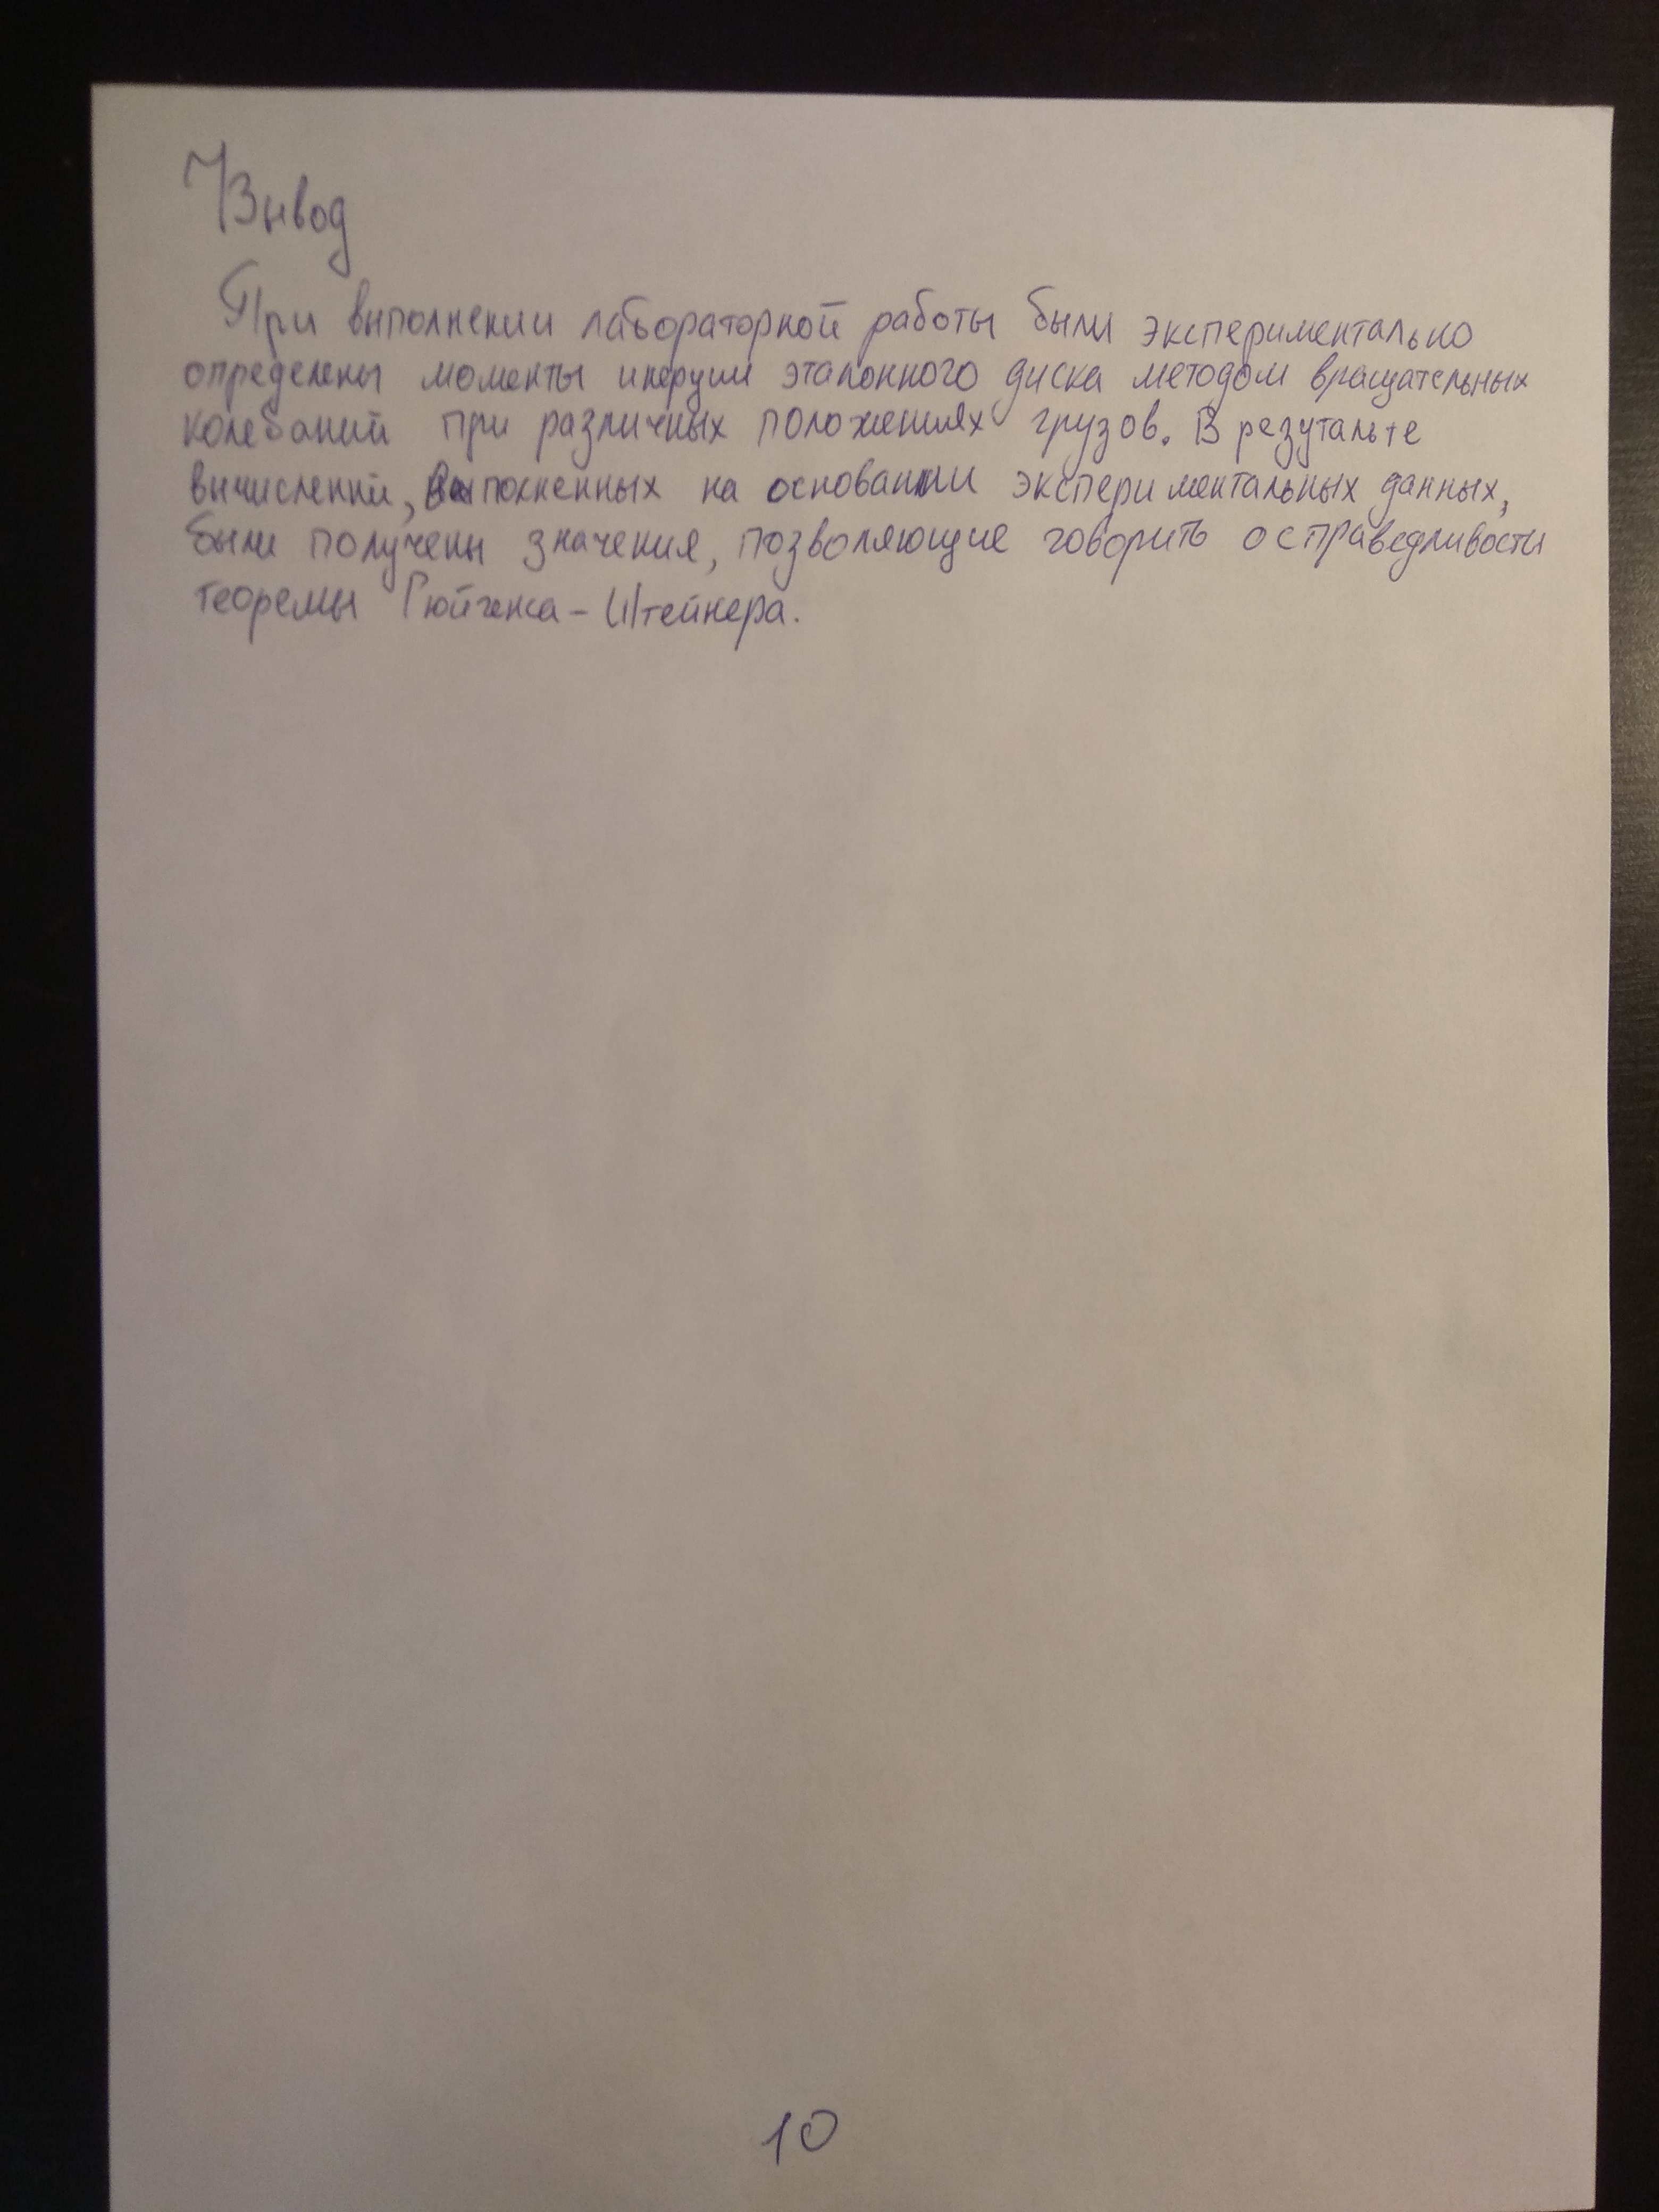 Вывод
При выполнении лабораторной работы были экспериментально
определены моменты инерции эталонного диска методом вращательных
колебаний при различных положениях грузов. В резутальте
вычислений, выполненных на основании экспериментальных данных,
были получены значения, позволяющие говорить о справедливости
теоремы Гюйгенса - Штейнера.
10